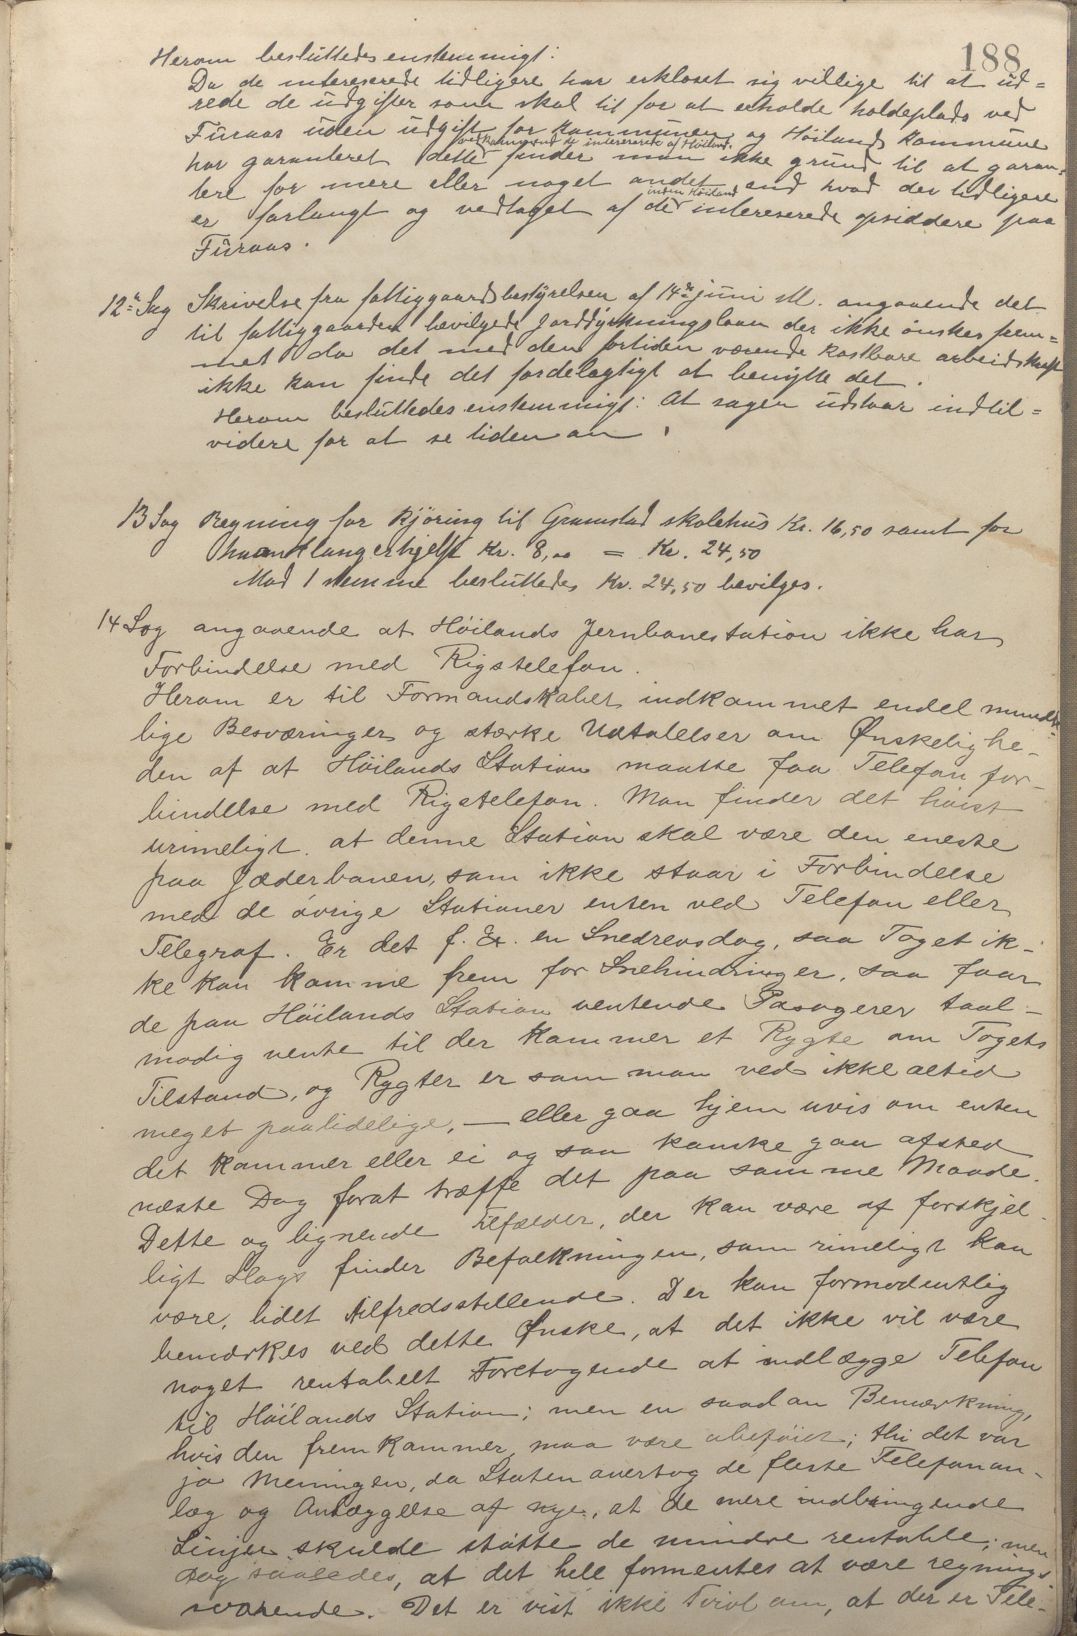 188
Herom besluttedes enstemmigt:
Da de intereserede tidligere har erklæret sig villige til at ud-
rede de udgifter som skal til for at erholde holdeplads ved
Furaas uden udgift for kommunen og Höiland kommune
har garanteret dette finder man ikke grund til at garan-
tere for mere eller noget andet end hvad der tidligere
er forlangt og vedtaget af de inden Höiland intereserede opsiddere paa
Furaas.
12te Sag Skrivelse fra fattiggaardsbestyrelsen af 14de juni M. angaaende det
til fattiggaarden bevilgede Jorddyrkningslaan der ikke önskes frem-
met da det med den fortiden værende kostbare arbeidskraft
ikke kan finde det fordelagtigt at benytte det.
Herom besluttedes enstemmigt: At sagen udstaar indtil-
videre for at se tiden an.
13 Sag Regning for kjöring til Gramstad skolehus Kr. 16,50 samt for
haandlangerhjelp Kr. 8,00 = Kr. 24,50
Mod 1 stemme besluttedes Kr. 24,50 bevilges.
14 Sag angaaende at Höilands Jernbanestation ikke har
Forbindelse med Rigstelefon.
Herom er til Formandskabet indkommet endel mundt-
lige Besværinger og stærke Udtalelser om Ønskelighe-
den af at Höilands Station maatte faa Telefon for-
bindelse med Rigstelefon. Man finder det höist
urimeligt at denne Station skal være den eneste
paa Jæderbanen, som ikke staar i Forbindelse
med de övrige Stationer enten ved Telefon eller
Telegraf. Er det f. Ex. en Snedrevsdag, saa Toget ik-
ke kan komme frem for Snehindringer, saa faar
de paa Höilands Station ventende Pasagerer taal-
modig vente til der kommer et Rygte om Togets
Tilstand, og Rygter er som man ved ikke altid
meget paalidelige, — eller gaa hjem uvis om enten
det kommer eller ei og saa kanske gaa afsted
næste Dag forat træffe det paa samme Maade.
Dette og lignende Tilfælder, der kan være af forskjel-
ligt Slags finder Befolkningen, som rimeligt kan
være, lidet tilfredsstillende. Der kan formodentlig
bemærkes ved dette Ønske, at det ikke vil være
noget rentabelt Foretagende at indlægge Telefon
til Höilands Station; men en saadan Bemærkning,
hvis den fremkommer, maa være ubeföiet; thi det var
jo Meningen, da Staten overtog de fleste Telefonan-
læg og Anlæggelse af nye, at de mere indbringende
Linjer skulde stötte de mindre rentable; men
dog saaledes, at det hele formentes at være regnings-
svarende. Det er vist ikke Tvivl om, at der er Tele-